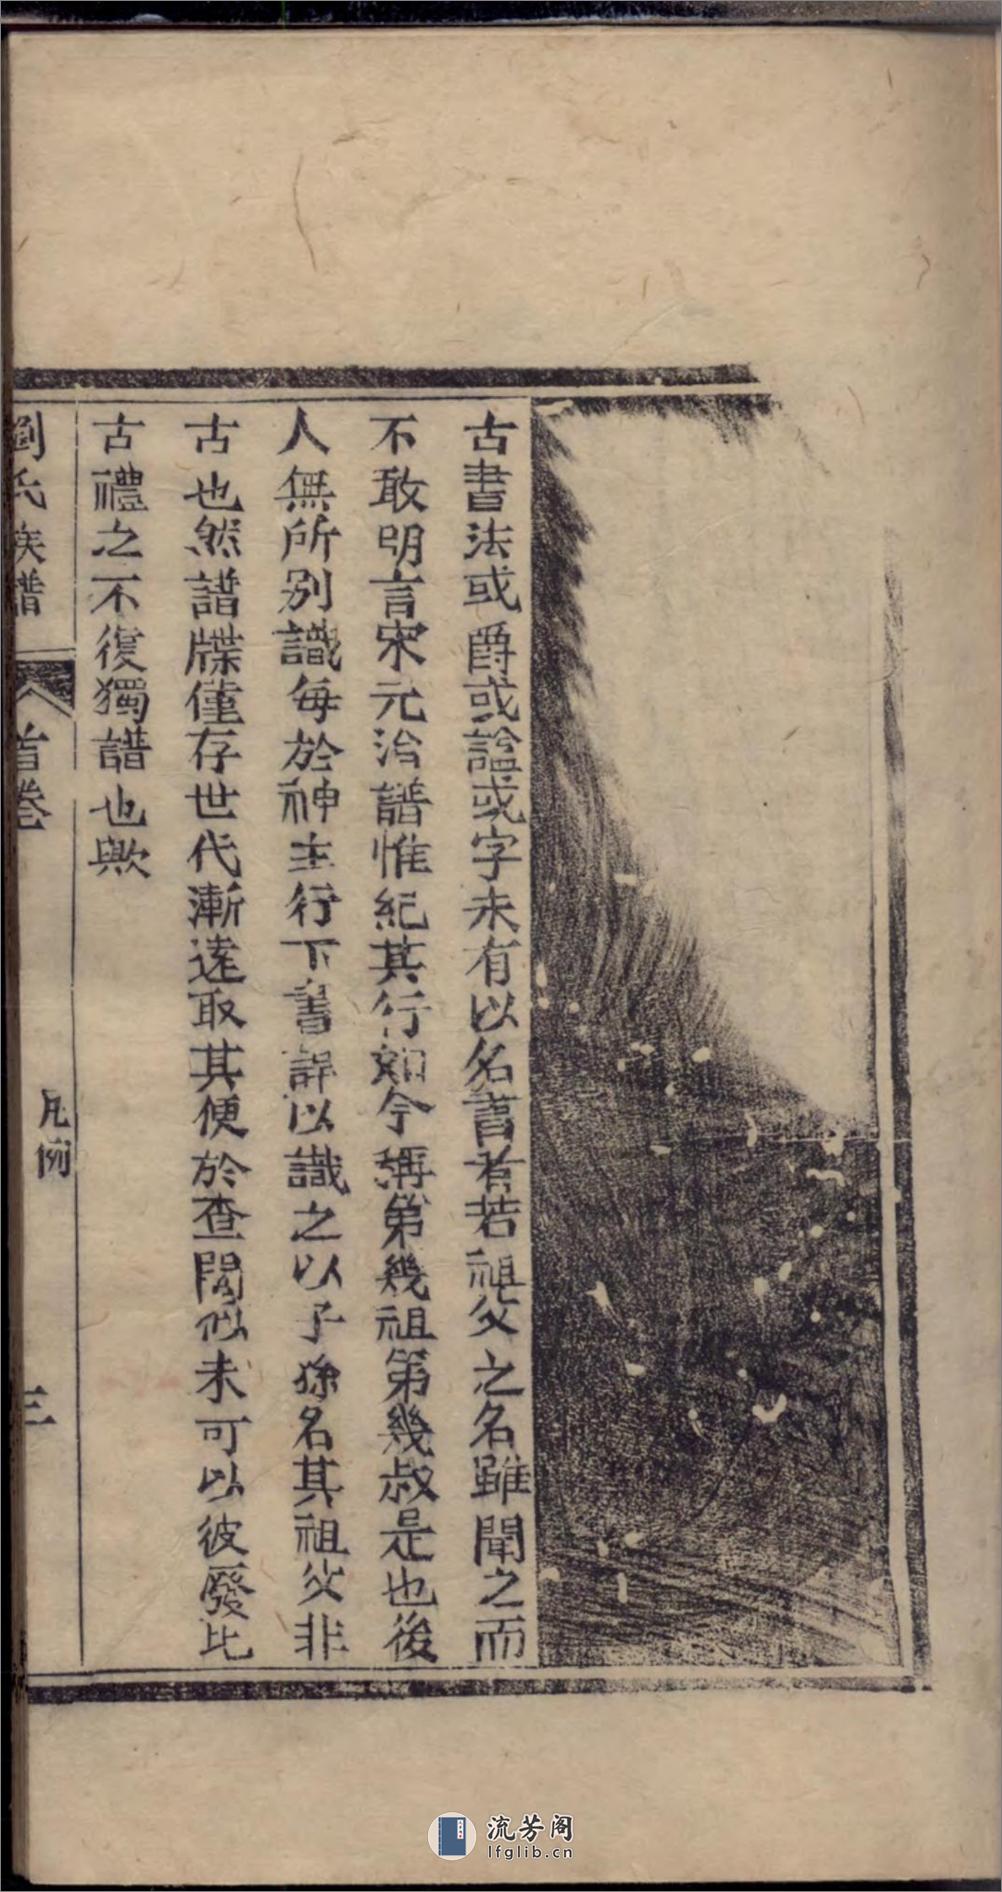 古書法或爵或諡或字未有以名書者若祖父之名雖聞之而
不敢明言宋元治譜惟紀其行如今稱第幾祖第幾叔是也後
人無所別識每於神主行下書諱以識之以子孫名其祖父非
古也然譜牒僅存世代漸遠取其便於查閱似未可以彼廢此
古禮之不復獨譜也歟
劉氏族譜 首卷 凡例 三
流芳阁
lfglib.cn